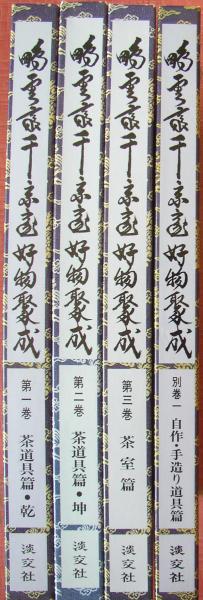 鵬雲斎千宗室好物聚成
第一巻 茶道具篇・乾
淡交社
鵬雲斎千宗室好物聚成
第二巻 茶道具篇・坤
淡交社
鵬雲斎千宗室好物聚成
第三巻 茶室篇
淡交社
鵬雲斎千宗室好物聚成
別巻一 自作・手造り道具篇
淡交社